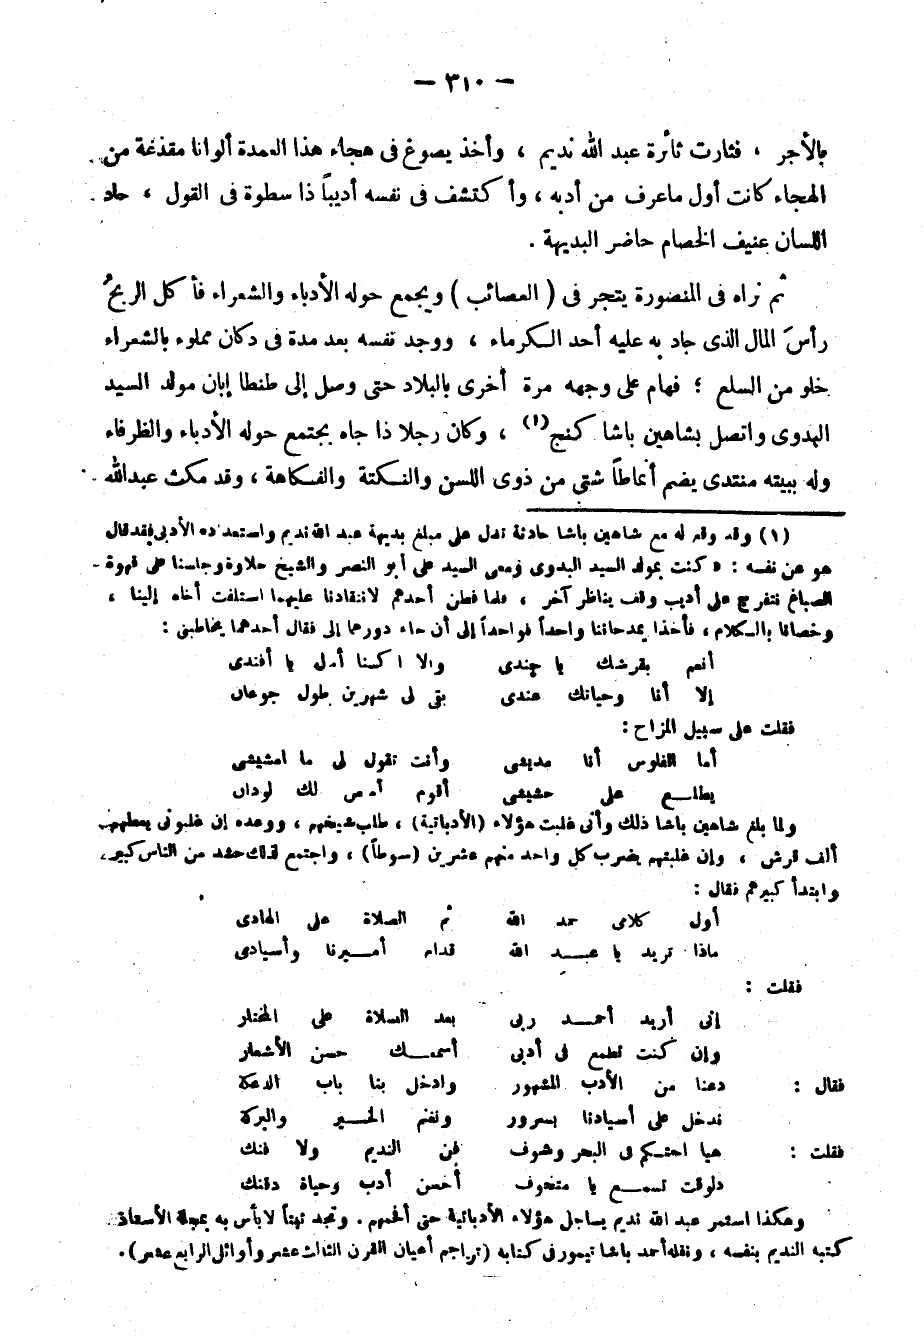 — ٣١٠ —
بالأجر ، فثارت ثائرة عبد الله نديم ، وأخذ يصوغ فى هجاء هذا العمدة ألوانا مقذعة من
الهجاء كانت أول ماعرف من أدبه ، وأكتشف فى نفسه أديباً ذا سطوة فى القول ، حاد
اللسان عنيف الخصام حاضر البديهة .
ثم نراه فى المنصورة يتجر فى ( العصائب ) ويجمع حوله الأدباء والشعراء فأكل الربحُ
رأسَ المال الذى جاد به عليه أحد الكرماء ، ووجد نفسه بعد مدة فى دكان مملوء بالشعراء
خلو من السلع ؛ فهام على وجهه مرة أخرى بالبلاد حتى وصل إلى طنطا إبان مولد السيد
البدوى واتصل بشاهين باشا كنج(١) ، وكان رجلا ذا جاه يجتمع حوله الأدباء والظرفاء
وله ببيته منتدى يضم أنماطاً شتى من ذوى اللسن والنكتة والفكاهة ، وقد مكث عبدالله
(١) وقد وقع له مع شاهين باشا حادثة تدل على مبلغ بديهة عبد الله نديم واستعداده الأدبى فقد قال
هو عن نفسه : « كنت بمولد السيد البدوى ومعى السيد على أبو النصر والشيخ حلاوة وجلسنا على قهوة
الصباغ نتفرج على أديب وقف يناظر آخر ، فلما فطن أحدهم لانتقادنا عليهما استلفت أخاه إلينا ،
وخصانا بالكلام ، فأخذا يمدحاننا واحداً فواحداً إلى أن جاء دورهما إلى فقال أحدهما يخاطبنى :
أنعم بقرشك يا جندى والا اكسنا أمل يا أفندى
إلا أنا وحياتك عندى بقى لى شهرين طول جوعان
فقلت على سبيل المزاح :
أما الفلوس أنا مديشى وأنت تقول لى ما امشيشى
يطلع على حشيشى أقوم أمص لك لودان
ولما بلغ شاهين باشا ذلك وأنى غلبت هؤلاء (الأدباتية) ، طلب شيخهم ، ووعده إن غلبونى يعطيهم
ألف قرش ، وإن غلبتهم يضرب كل واحد منهم عشرين (سوطاً) ، واجتمع لذلك حشد من الناس كبير ،
وابتدأ كبيرهم فقال :
أول كلامى حمد الله ثم الصلاة على الهادى
ماذا تريد يا عبد الله قدام أميرنا وأسيادى
فقلت :
إنى أريد أحمد ربى بعد الصلاة على المختار
وإن كنت تطمع فى أدبى أسمعك حسن الأشعار
فقال : دعنا من الأدب المشهور وادخل بنا باب الدعكة
ندخل على أسيادنا بسرور ونغنم الخير والبركة
فقلت : هيا احتكم فى البحر وشوف فن النديم ولا فنك
دلوقت تسمع يا متحوف أحسن أدب وحياة دقنك
وهكذا استمر عبد الله نديم يساجل هؤلاء الأدباتية حتى أفحمهم . وتجد نهتاً لابأس به بمجلة الأستاذ
كتبه النديم بنفسه ، ونقله أحمد باشا تيمور فى كتابه (تراجم أعيان القرن الثالث عشر وأوائل الرابع عشر) .